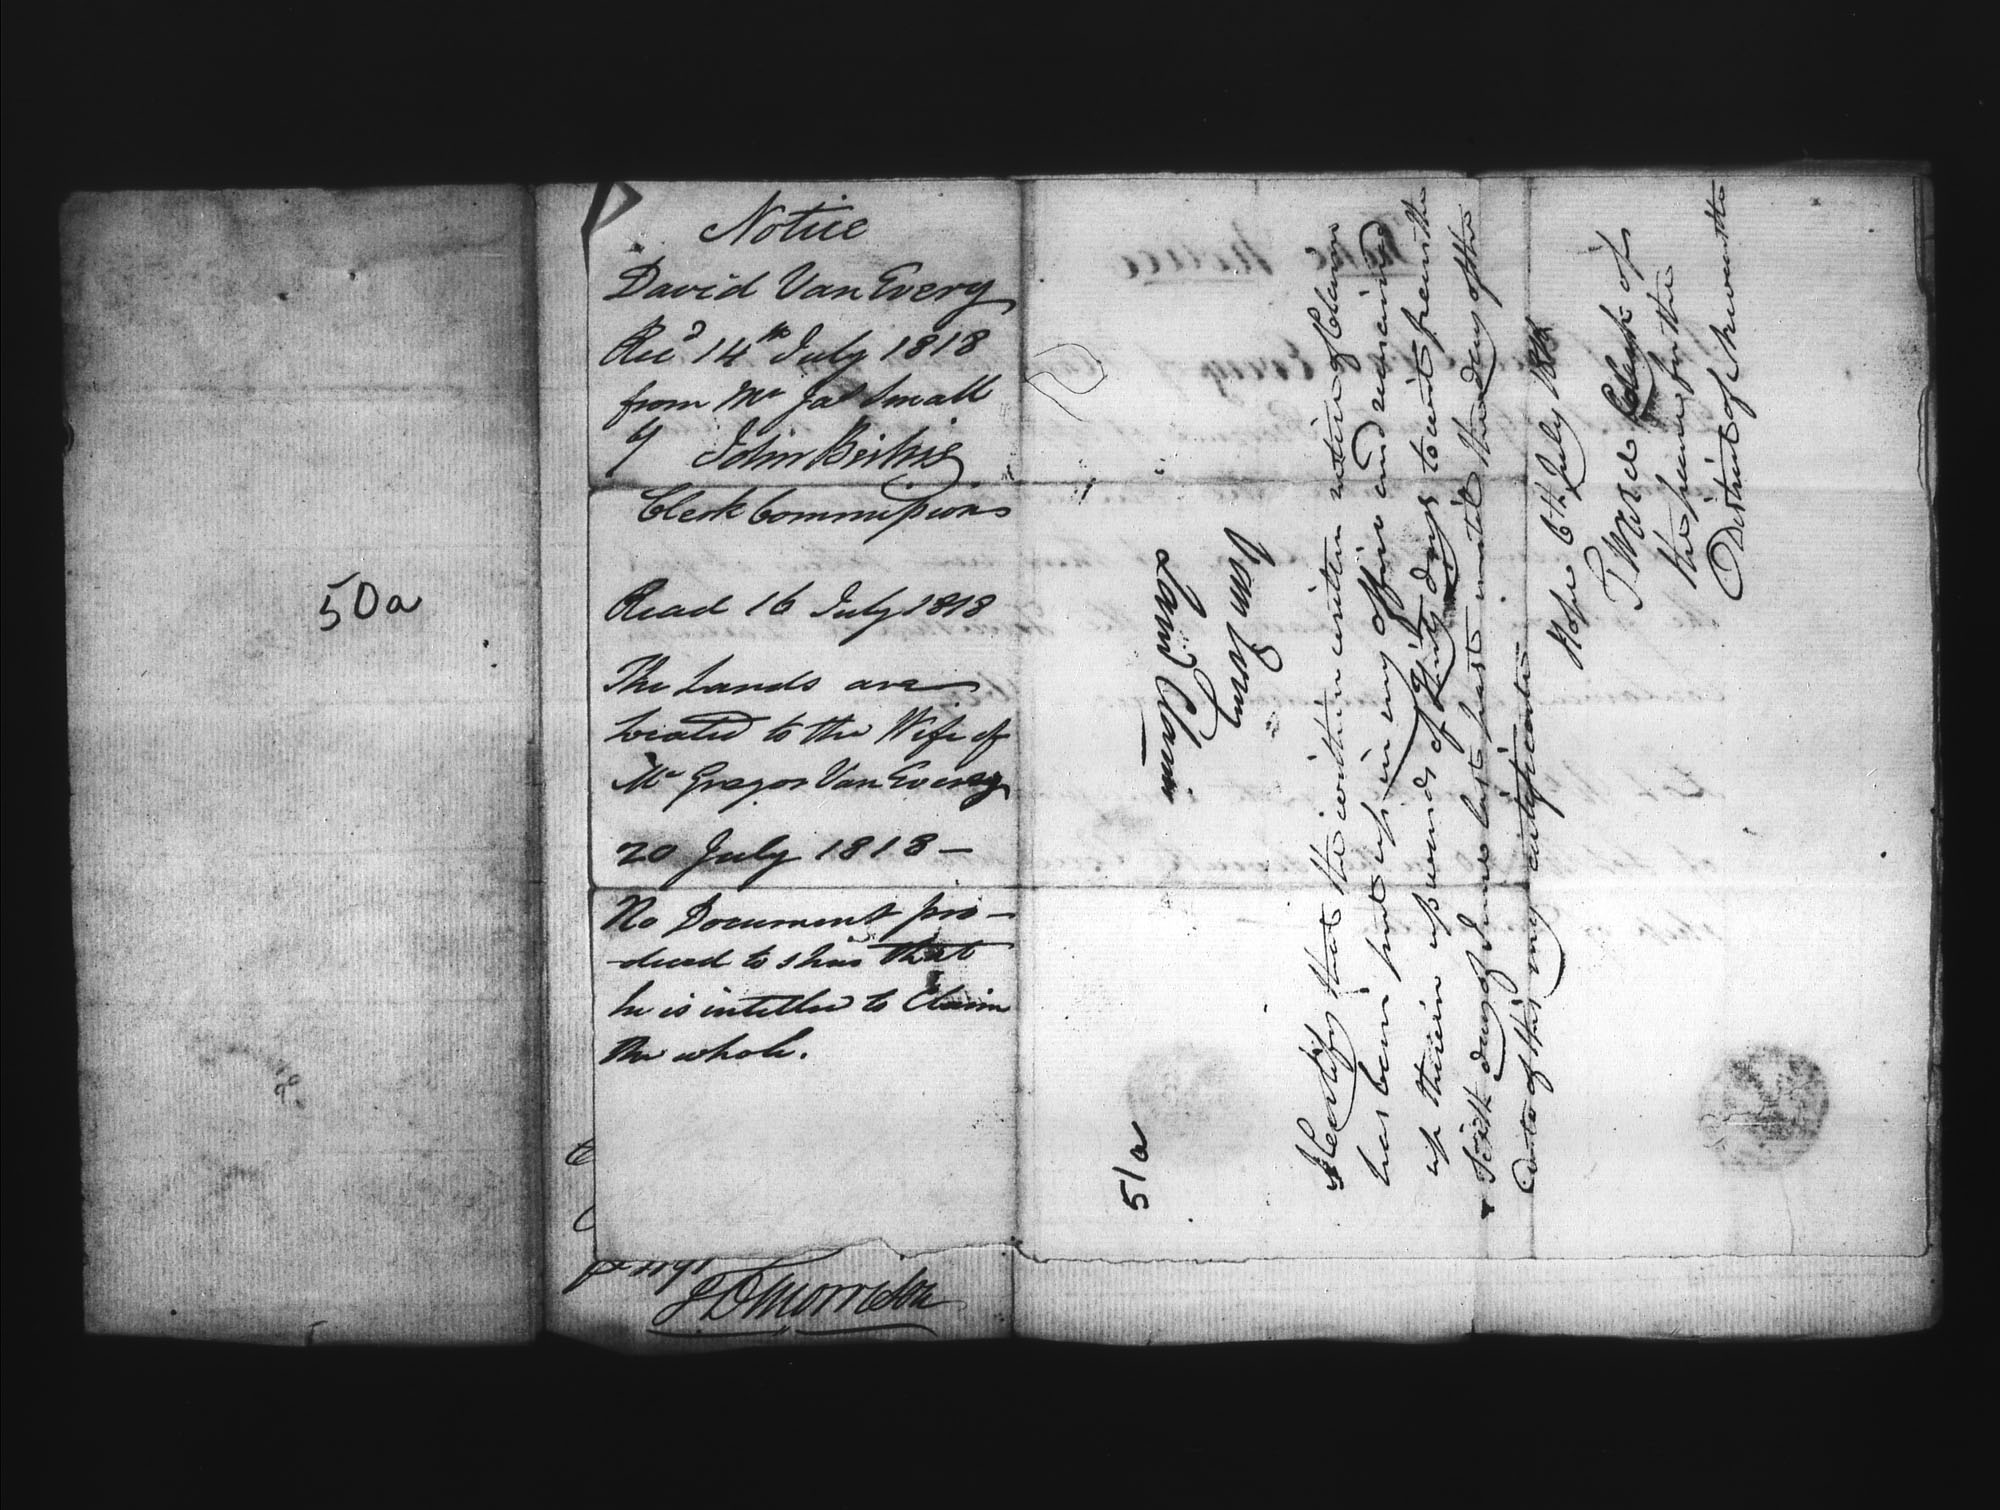 50a
Notice
David Van Every
Recd 14th July 1818
from Mr Jas Small
John Beikie
Clerk Commissions
Read 16 July 1818
The Lands are
located to the Wife of
Mc Gregor Van Every
20 July 1818 –
No Document pro-
-duced to shew that
he is intitled to Claim
the whole.
J D Morrison
51a
Van Every
Land Claim
I Certify that the within written notice of Claim
has been put up in my office and remained
up therein upwards of thirty days to wit from the
Sixth day of June last past until the day of the
date of this my certificate
Hope 6th July 1818
T Ward Clerk of
the peace for the
District of Newcastle